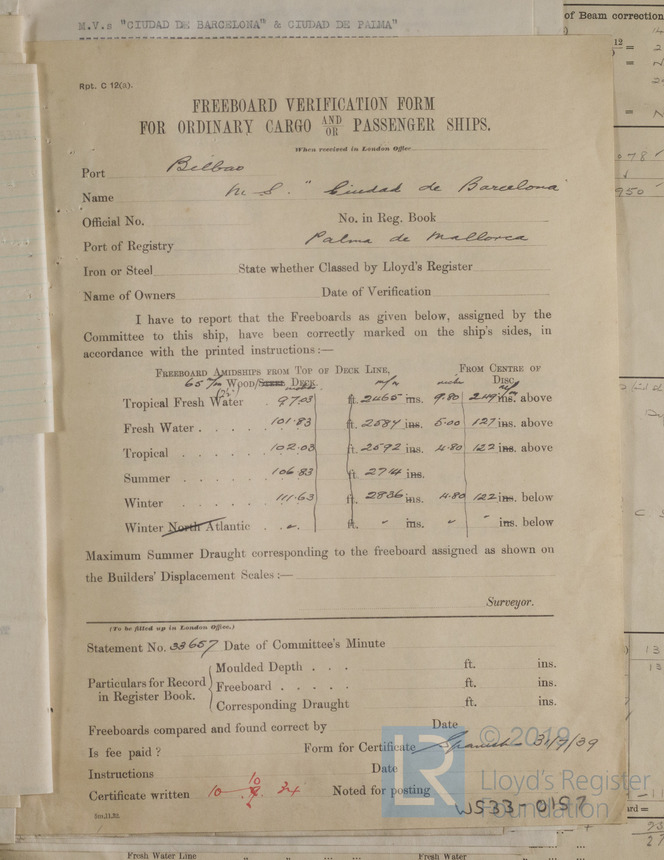 M.V.s "CIUDAD DE BARCELONA" & CIUDAD DE PALMA"
of Beam correction
Rpt. C 12(a).
FREEBOARD VERIFICATION FORM
FOR ORDINARY CARGO AND OR PASSENGER SHIPS.
When received in London Office
Port Bilbao
Name M.S. "Ciudad de Barcelona"
Official No. No. in Reg. Book
Port of Registry Palma de Mallorca
Iron or Steel State whether Classed by Lloyd's Register
Name of Owners Date of Verification
I have to report that the Freeboards as given below, assigned by the
Committee to this ship, have been correctly marked on the ship's sides, in
accordance with the printed instructions:—
FREEBOARD AMIDSHIPS FROM TOP OF DECK LINE, FROM CENTRE OF
65 m/m WOOD/STEEL DECK. m/m DISC. m/m
Tropical Fresh Water 97.03 ft. 2465 ins. 9.80 249 ins. above
Fresh Water 101.83 ft. 2587 ins. 5.00 127 ins. above
Tropical 102.03 ft. 2592 ins. 4.80 122 ins. above
Summer 106.83 ft. 2714 ins.
Winter 111.63 ft. 2836 ins. 4.80 122 ins. below
Winter North Atlantic " ft. " ins. " " ins. below
Maximum Summer Draught corresponding to the freeboard assigned as shown on
the Builders' Displacement Scales :—
Surveyor.
(To be filled up in London Office.)
Statement No. 33657 Date of Committee's Minute
Particulars for Record in Register Book.
Moulded Depth ft. ins.
Freeboard ft. ins.
Corresponding Draught ft. ins.
Freeboards compared and found correct by Date
Is fee paid? Form for Certificate Spanish 31/7/39
Instructions Date
Certificate written 10 34 Noted for posting
W533-0157
© 2019
LR
Lloyd's Register
Foundation
Fresh Water Line " " ... Fresh Water